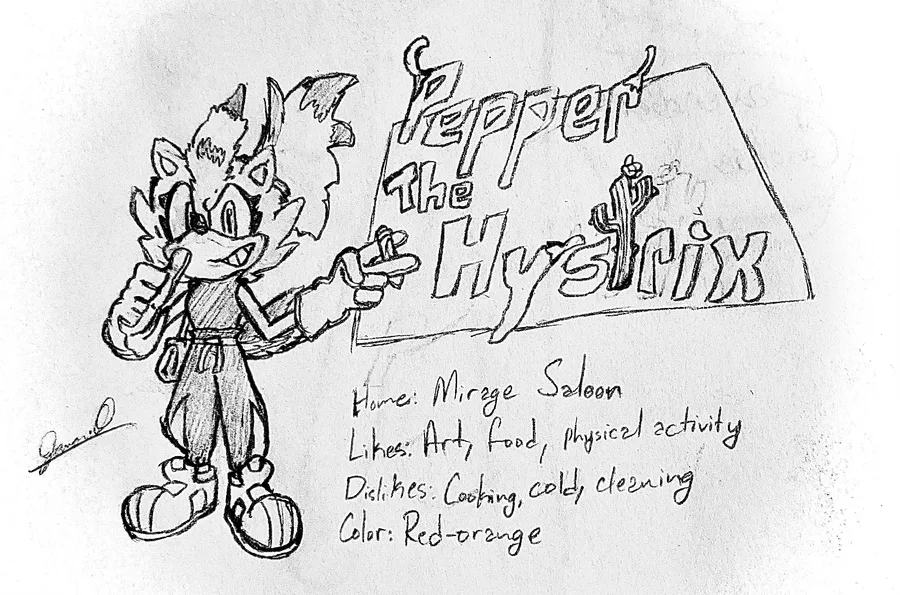 Pepper
The
Hystrix
Home: Mirage Saloon
Likes: Art, food, physical activity
Dislikes: Cooking, cold, cleaning
Color: Red-orange